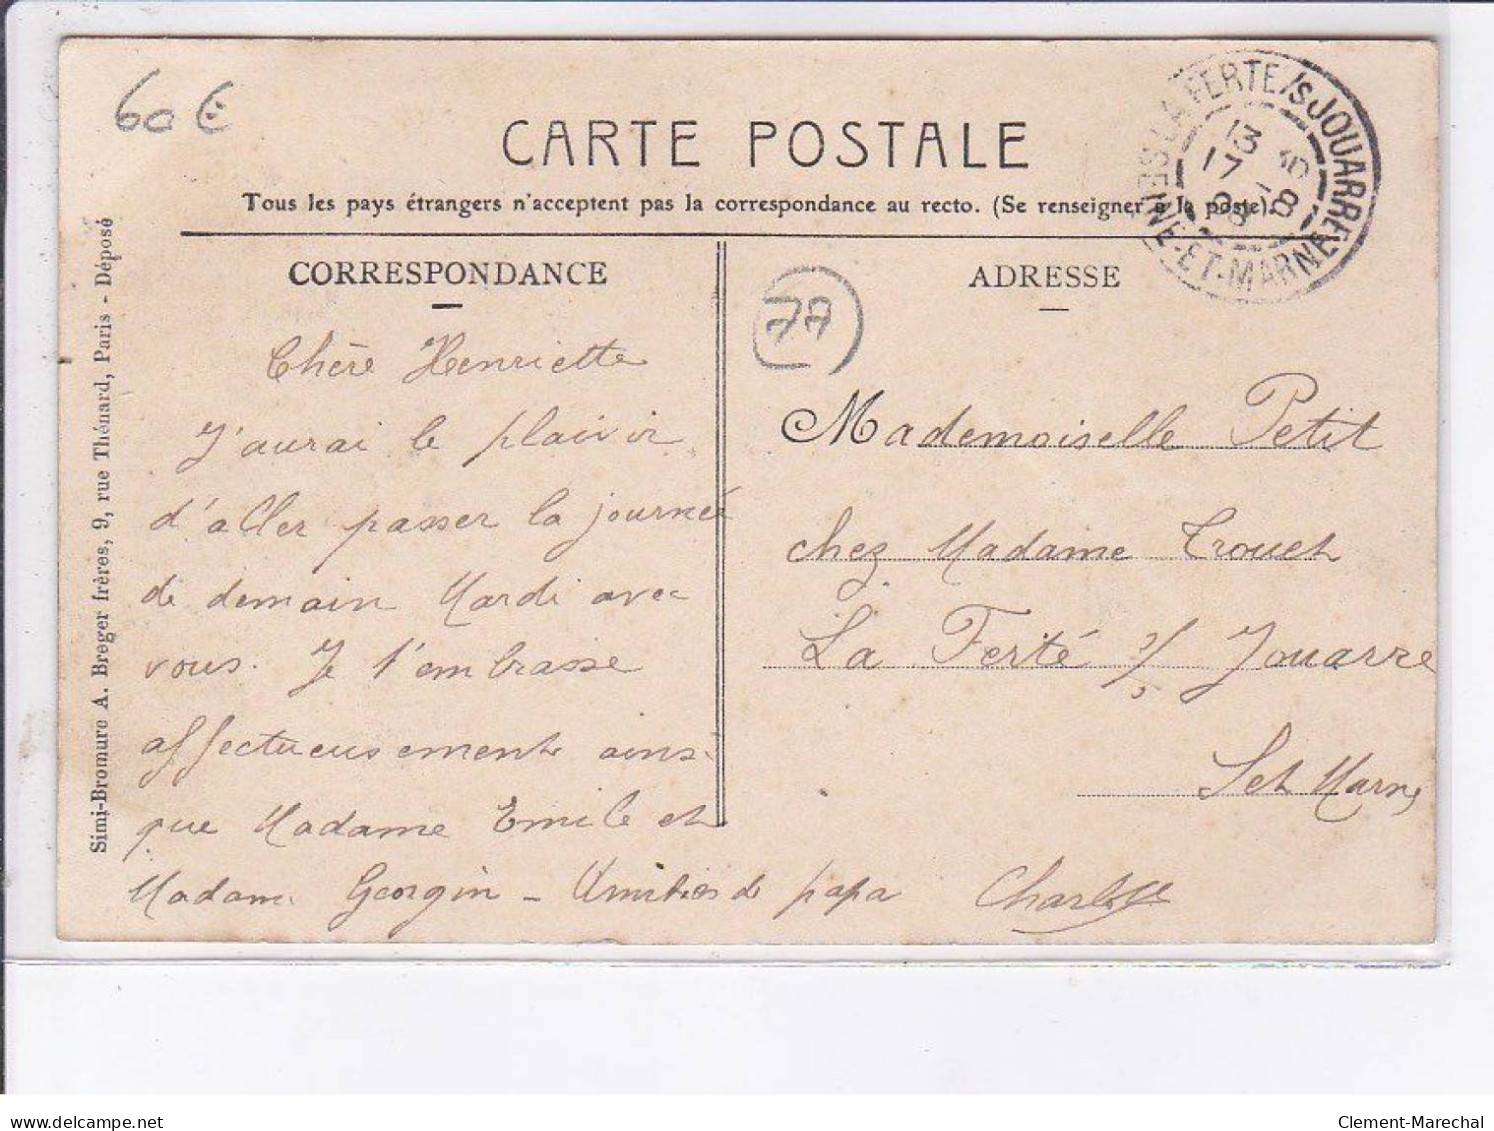 60 €
CARTE POSTALE
Tous les pays étrangers n'acceptent pas la correspondance au recto. (Se renseigner à la poste).
LA FERTE/S JOUARRE
13
17 8
SEINE-ET-MARNE
Simi-Bromure A. Breger frères, 9, rue Thénard, Paris - Déposé
CORRESPONDANCE
Chère Henriette
J'aurai le plaisir
d'aller passer la journée
de demain Mardi avec
vous. Je t'embrasse
affectueusement ainsi
que Madame Emile et
Madame Georgin - Amitiés de papa Charlotte
ADRESSE
77
Mademoiselle Petit
chez Madame Trouet
La Ferté s/ Jouarre
S et Marne
Clement-Marechal
delcampe.net